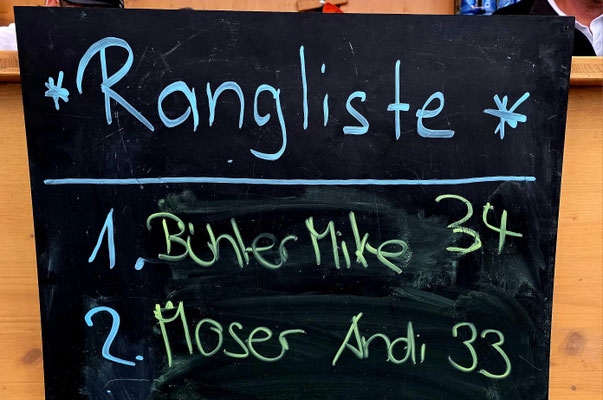 * Rangliste *
1. Bühler Mike 34
2. Moser Andi 33